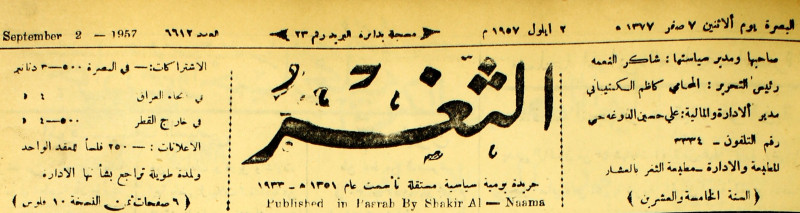 البصرة يوم ألاثنين ٧ صفر ١٣٧٧ ه
٢ ايلول ١٩٥٧ م
مسجلة بدائرة البريد رقم ٢٣
العدد ٦٦١٢
September 2 - 1957
صاحبها ومدير سياستها: شاكر النعمه
رئيس التحرير: المحامي كاظم
مدير ألادارة والمالية: علي حسين
رقم التلفون - ٣٣٣٤
المطبعة والادارة - مطبعة الثغر بالعشار
( السنة الخامسة والعشرين )
الثغر
جريدة يومية سياسية مستقلة تأسست عام ١٣٥١ ه - ١٩٣٣
Published in Basrah By Shakir Al - Naama
الاشتراكات: - في البصرة ٥٠٠-٣ دنانير
في انحاء العراق ٤ »
في خارج القطر ٥٠٠-٤ »
الاعلانات: - ٢٥٠ فلساً للعقد الواحد
ولمدة طويلة تراجع بشأنها الادارة
( ٦ صفحات ثمن النسخة ١٠ فلوس )